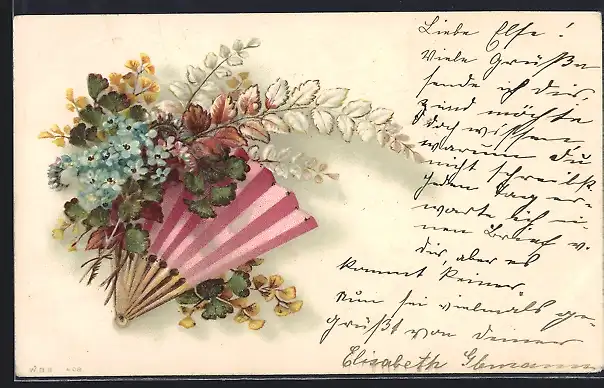 Liebe Else!
Viele Grüße
sende ich dir
und möchte
doch wissen
warum du
nicht schreibst
jeden Tag er-
warte ich ei-
nen Brief v.
dir, aber es
kommt keiner.
Nun sei vielmals ge-
grüßt von deiner
Elisabeth